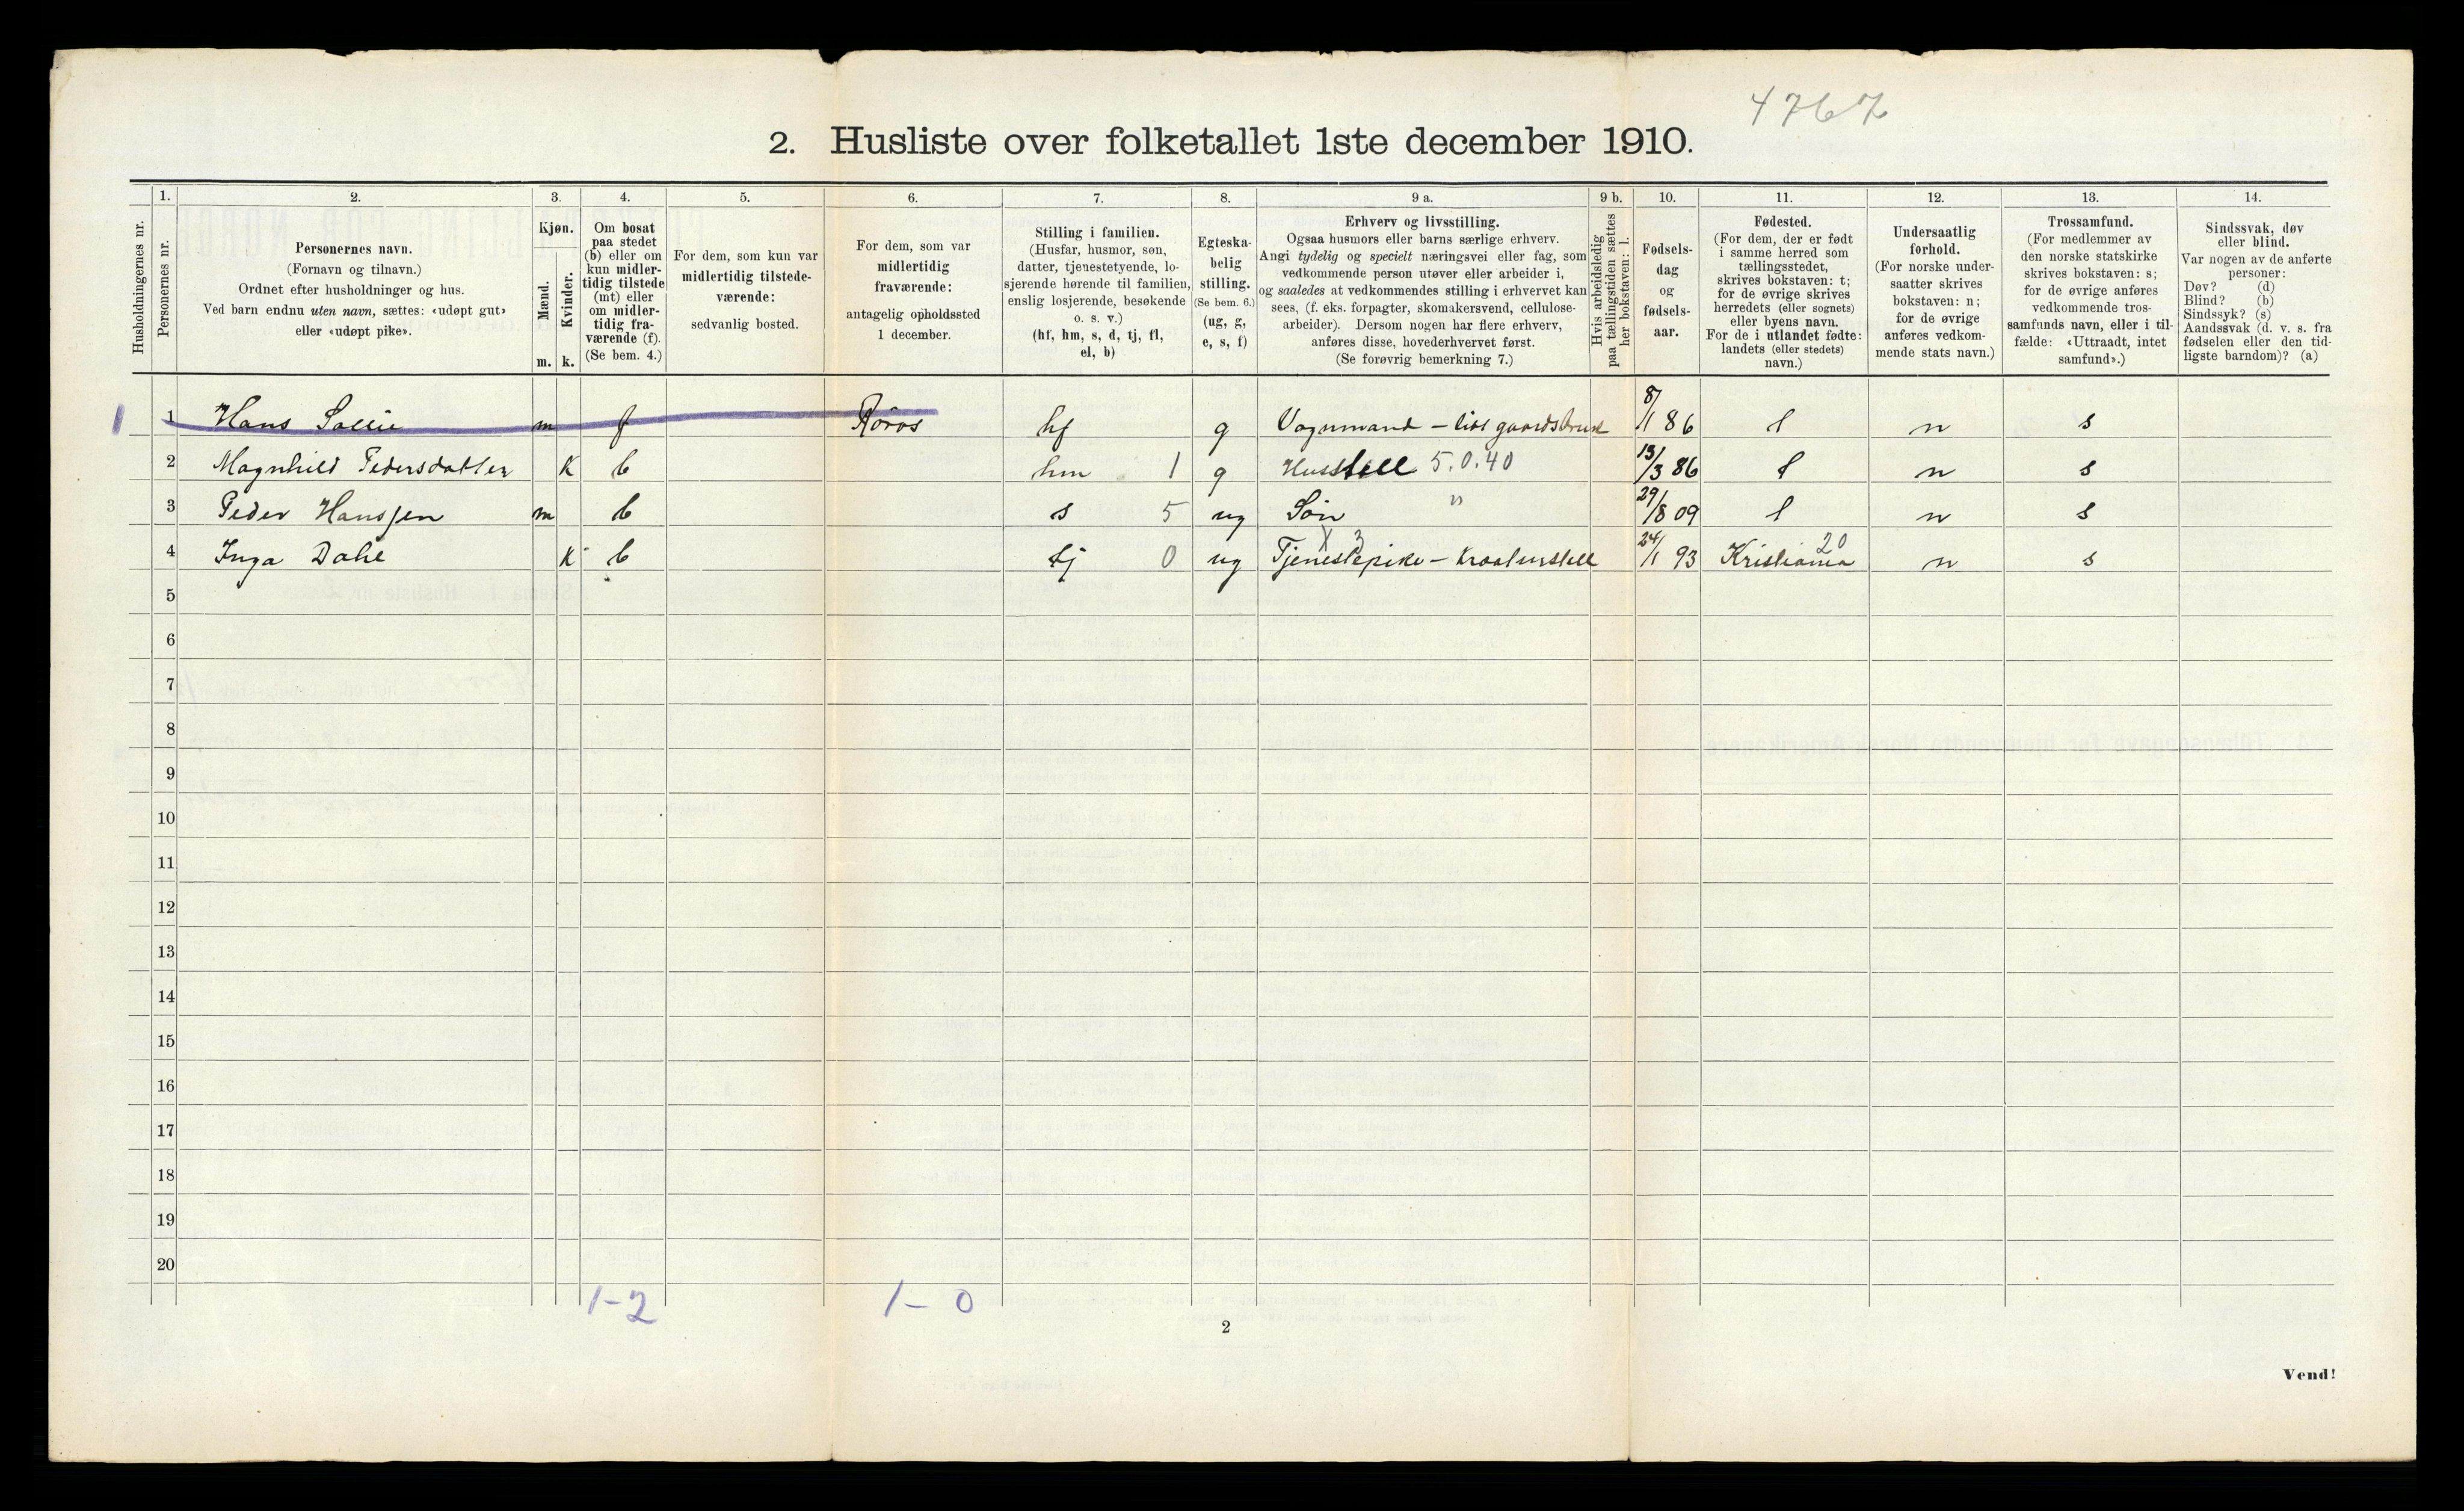 4767
2. Husliste over folketallet 1ste december 1910.
Husholdningernes nr.
1.
Personernes nr.
2.
Personernes navn.
(Fornavn og tilnavn.)
Ordnet efter husholdninger og hus.
Ved barn endnu uten navn, sættes: «udøpt gut»
eller «udøpt pike».
3.
Kjøn.
Mænd.
Kvinder.
m. k.
4.
Om bosat
paa stedet
(b) eller om
kun midler-
tidig tilstede
(mt) eller
om midler-
tidig fra-
værende (f).
(Se bem. 4.)
5.
For dem, som kun var
midlertidig tilstede-
værende:
sedvanlig bosted.
6.
For dem, som var
midlertidig
fraværende:
antagelig opholdssted
1 december.
7.
Stilling i familien.
(Husfar, husmor, søn,
datter, tjenestetyende, lo-
sjerende hørende til familien,
enslig losjerende, besøkende
o. s. v.)
(hf, hm, s, d, tj, fl,
el, b)
8.
Egteska-
belig
stilling.
(Se bem. 6.)
(ug, g,
e, s, f)
9 a.
Erhverv og livsstilling.
Ogsaa husmors eller barns særlige erhverv.
Angi tydelig og specielt næringsvei eller fag, som
vedkommende person utøver eller arbeider i,
og saaledes at vedkommendes stilling i erhvervet kan
sees, (f. eks. forpagter, skomakersvend, cellulose-
arbeider). Dersom nogen har flere erhverv,
anføres disse, hovederhvervet først.
(Se forøvrig bemerkning 7.)
9 b.
Hvis arbeidsledig
paa tællingstiden sættes
her bokstaven: l.
10.
Fødsels-
dag
og
fødsels-
aar.
11.
Fødested.
(For dem, der er født
i samme herred som
tællingsstedet,
skrives bokstaven: t;
for de øvrige skrives
herredets (eller sognets)
eller byens navn.
For de i utlandet fødte:
landets (eller stedets)
navn.)
12.
Undersaatlig
forhold.
(For norske under-
saatter skrives
bokstaven: n;
for de øvrige
anføres vedkom-
mende stats navn.)
13.
Trossamfund.
(For medlemmer av
den norske statskirke
skrives bokstaven: s;
for de øvrige anføres
vedkommende tros-
samfunds navn, eller i til-
fælde: «Uttraadt, intet
samfund».)
14.
Sindssvak, døv
eller blind.
Var nogen av de anførte
personer:
Døv? (d)
Blind? (b)
Sindssyk? (s)
Aandssvak (d. v. s. fra
fødselen eller den tid-
ligste barndom)? (a)
1 1 Hans Sollie m f Røros hf g Vognmand – lidt gaardsbruk 8/1 86 t n s
2 Magnhild Pedersdatter K b hm 1 g Husstell 5.0.40 13/3 86 t n s
3 Peder Hanssen m b s 5 ug Søn " 29/8 09 t n s
4 Inga Dahl K b tj 0 ug Tjenestepike – Kreaturstell X 3 24/1 93 Kristiania 20 n s
5
6
7
8
9
10
11
12
13
14
15
16
17
18
19
20
1–2 1–0
2
Vend!